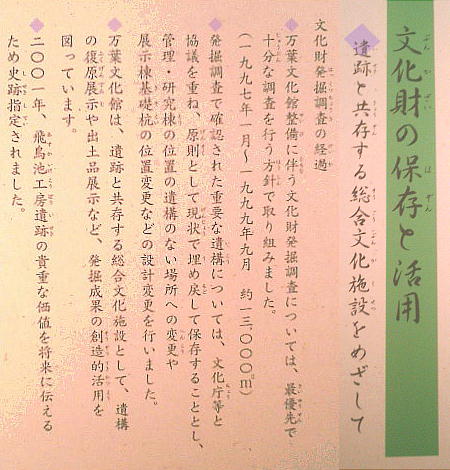 文化財の保存と活用
◆遺跡と共存する総合文化施設をめざして
文化財発掘調査の経過
◆万葉文化館整備に伴う文化財発掘調査については、最優先で
十分な調査を行う方針で取り組みました。
（一九九七年一月〜一九九九年九月　約一三,〇〇〇㎡）
◆発掘調査で確認された重要な遺構については、文化庁等と
協議を重ね、原則として現状で埋め戻して保存することとし、
管理・研究棟の位置の遺構のない場所への変更や
展示棟基礎杭の位置変更などの設計変更を行いました。
◆万葉文化館は、遺跡と共存する総合文化施設として、遺構
の復原展示や出土品展示など、発掘成果の創造的活用を
図っています。
◆二〇〇一年、飛鳥池工房遺跡の貴重な価値を将来に伝える
ため史跡指定されました。